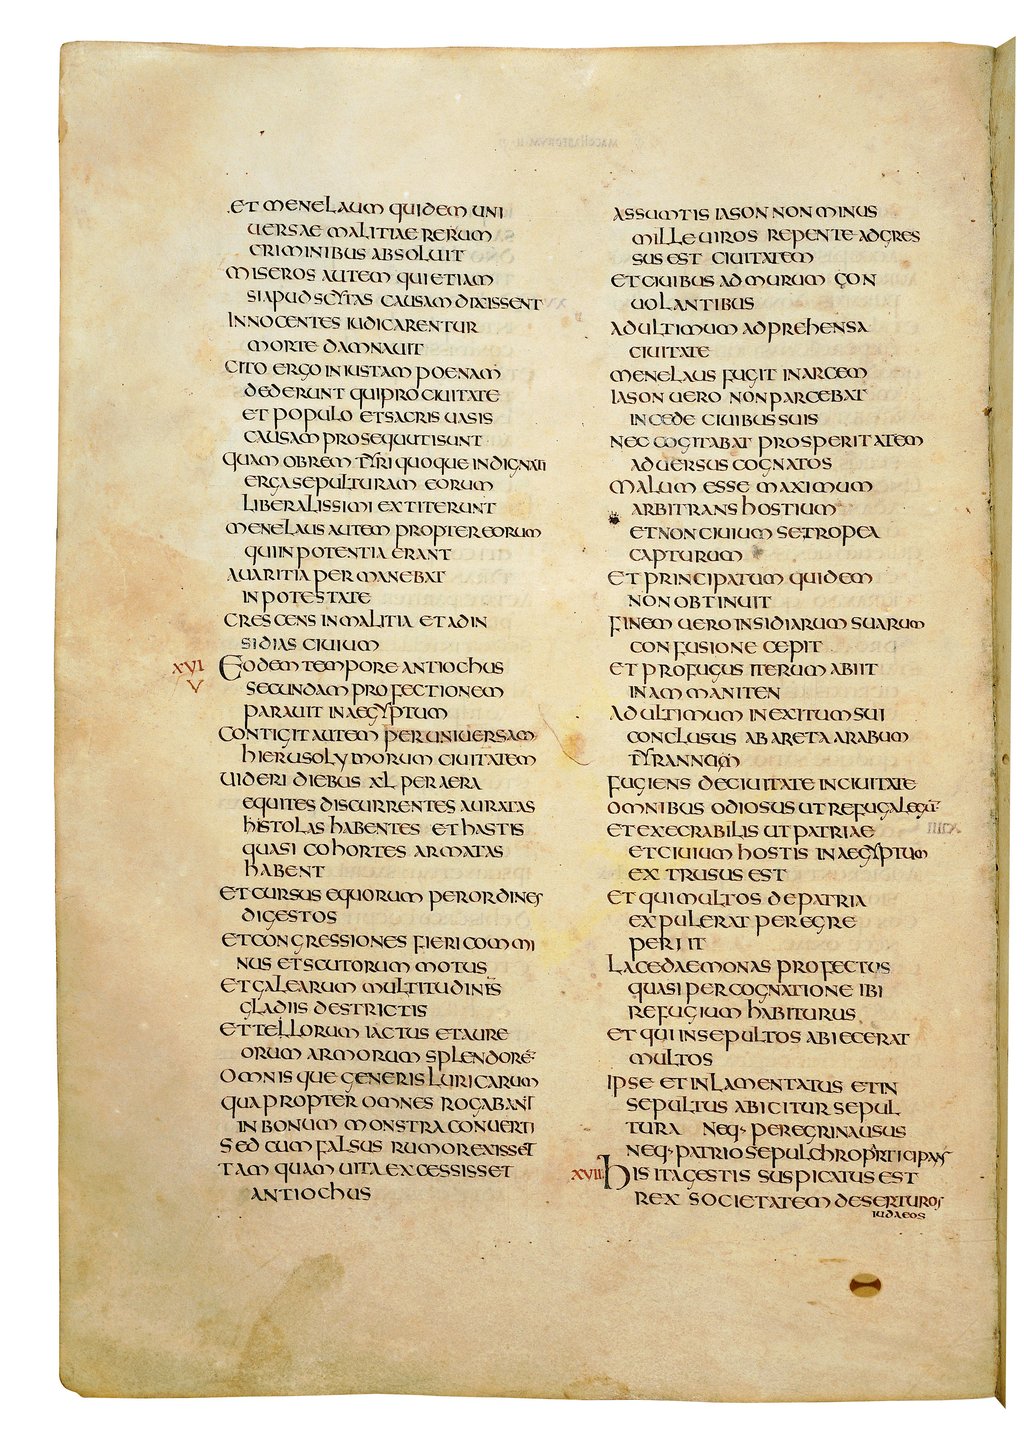 ET MENELAUM QUIDEM UNI
UERSAE MALITIAE RERUM
CRIMINIBUS ABSOLUIT
MISEROS AUTEM QUI ETIAM
SI APUD SCYTAS CAUSAM DIXISSENT
INNOCENTES IUDICARENTUR
MORTE DAMNAUIT
CITO ERGO INIUSTAM POENAM
DEDERUNT QUI PRO CIUITATE
ET POPULO ET SACRIS UASIS
CAUSAM PROSEQUUTI SUNT
QUAM OBREM TYRI QUOQUE INDIGNATI
ERGA SEPULTURAM EORUM
LIBERALISSIMI EXTITERUNT
MENELAUS AUTEM PROPTER EORUM
QUI IN POTENTIA ERANT
AUARITIA PERMANEBAT
IN POTESTATE
CRESCENS IN MALITIA ET AD IN
SIDIAS CIUIUM
XVI EODEM TEMPORE ANTIOCHUS
V SECUNDAM PROFECTIONEM
PARAUIT IN AEGYPTUM
CONTIGIT AUTEM PER UNIUERSAM
HIERUSOLYMORUM CIUITATEM
UIDERI DIEBUS XL PER AERA
EQUITES DISCURRENTES AURATAS
HISTOLAS HABENTES ET HASTIS
QUASI COHORTES ARMATAS
HABENT
ET CURSUS EQUORUM PER ORDINES
DIGESTOS
ET CONGRESSIONES FIERI COMMI
NUS ET SCUTORUM MOTUS
ET GALEARUM MULTITUDINIS
GLADIIS DESTRICTIS
ET TELLORUM IACTUS ET AURE
ORUM ARMORUM SPLENDORE
OMNISQUE GENERIS LURICARUM
QUAPROPTER OMNES ROGABANT
IN BONUM MONSTRA CONUERTI
SED CUM FALSUS RUMOR EXISSET
TAMQUAM UITA EXCESSISSET
ANTIOCHUS
ASSUMTIS IASON NON MINUS
MILLE UIROS REPENTE ADGRES
SUS EST CIUITATEM
ET CIUIBUS AD MURUM CON
UOLANTIBUS
AD ULTIMUM ADPREHENSA
CIUITATE
MENELAUS FUGIT IN ARCEM
IASON UERO NON PARCEBAT
IN CEDE CIUIBUS SUIS
NEC COGITABAT PROSPERITATEM
ADUERSUS COGNATOS
MALUM ESSE MAXIMUM
ARBITRANS HOSTIUM
ET NON CIUIUM SE TROPEA
CAPTURUM
ET PRINCIPATUM QUIDEM
NON OBTINUIT
FINEM UERO INSIDIARUM SUARUM
CONFUSIONE CEPIT
ET PROFUGUS ITERUM ABIIT
IN AMMANITEN
AD ULTIMUM IN EXITUM SUI
CONCLUSUS AB ARETA ARABUM
TYRANNUM
FUGIENS DE CIUITATE IN CIUITATE
OMNIBUS ODIOSUS UT REFUGA LEGU
ET EXECRABILIS UT PATRIAE
ET CIUIUM HOSTIS IN AEGYPTUM
EXTRUSUS EST
ET QUI MULTOS DE PATRIA
EXPULERAT PEREGRE
PERIIT
LACEDAEMONAS PROFECTUS
QUASI PER COGNATIONE IBI
REFUGIUM HABITURUS
ET QUI INSEPULTOS ABIECERAT
MULTOS
IPSE ET INLAMENTATUS ET IN
SEPULTUS ABICITUR SEPUL
TURA NEQ· PEREGRINA USUS
NEQ· PATRIO SEPULCHRO PARTICIPANS
XVII HIS ITA GESTIS SUSPICATUS EST
REX SOCIETATEM DESERTUROS
IUDAEOS